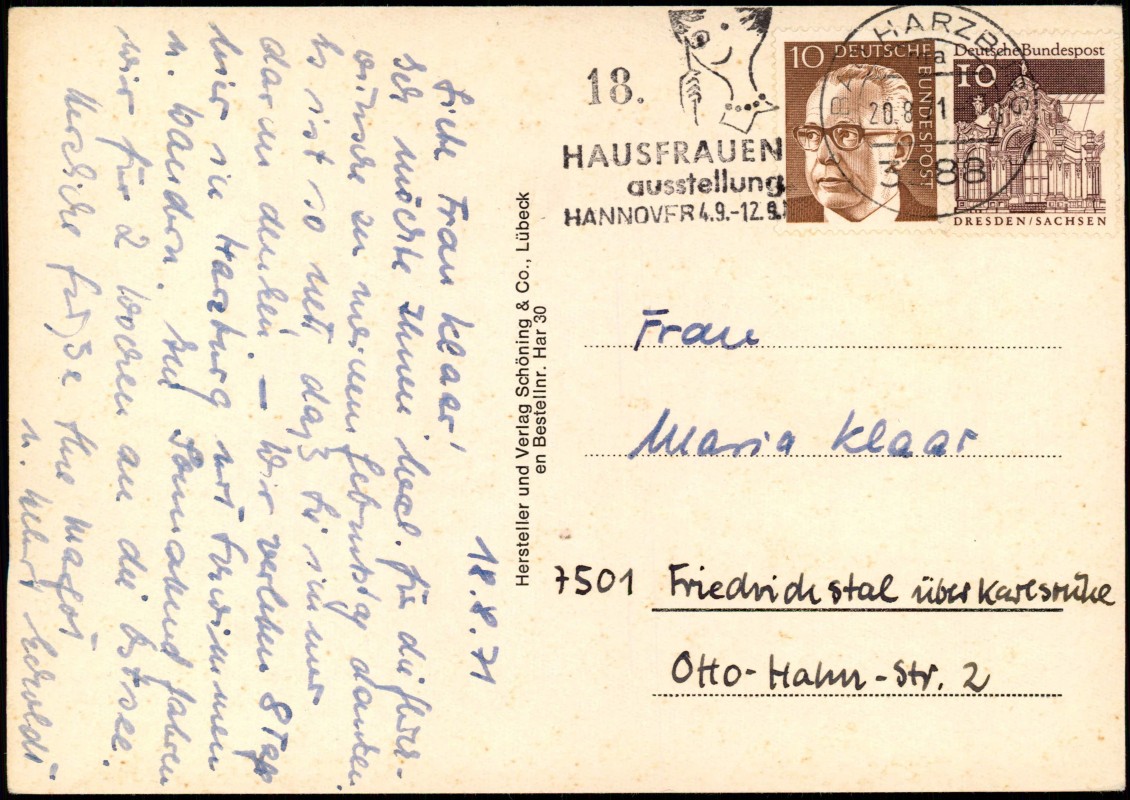 18.8.71
Liebe Frau Klaar!
Ich möchte Ihnen herzl. für die Glück-
wünsche zu meinem Geburtstag danken.
Es ist so nett, daß Sie immer
daran denken — Wir verleben 8 Tage
hier in Harzburg mit Schwimmen
u. Wandern. Am Sonnabend fahren
wir für 2 Wochen an die Ostsee.
Herzliche Grüße Ihre Margot
u.
Hersteller und Verlag Schöning & Co., Lübeck
en Bestellnr. Har 30
18.
HAUSFRAUEN
ausstellung
HANNOVER 4.9.-12.9.
10 DEUTSCHE BUNDESPOST
Deutsche Bundespost
10
DRESDEN/SACHSEN
BAD HARZBURG
20.8.71
3388
Frau
Maria Klaar
7501 Friedrichstal über Karlsruhe
Otto-Hahn-Str. 2